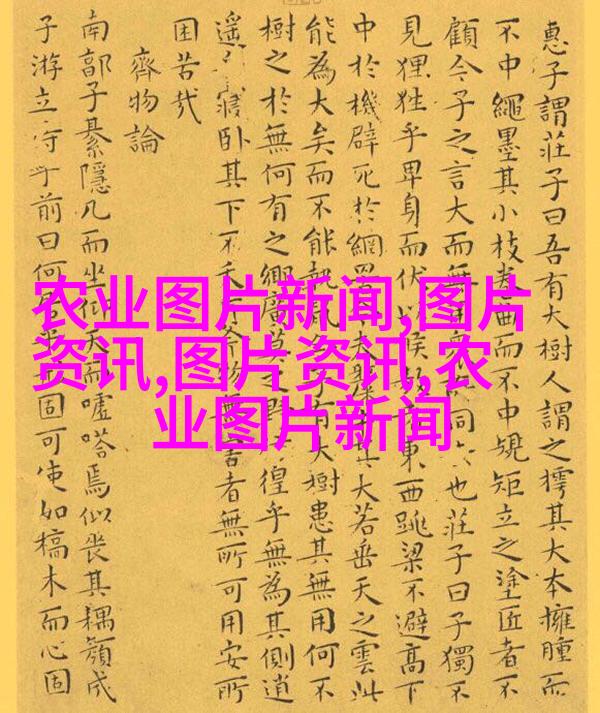 惠子謂莊子曰吾有大樹人謂之樗其大本擁腫而
不中繩墨其小枝卷曲而不中規矩立之塗匠者不
顧今子之言大而無同也莊子曰子獨不
見狸狌乎卑身而伏以候東西跳梁不避高下
中於機辟死於網罟夫其大若垂天之雲此
能為大矣而不能執鼠大樹患其無用何不
樹之於無何有之鄉廣莫之野徨乎無為其側逍
遙寢臥其下不物無害者無所可用安所
困苦哉
齊物論
南郭子綦隱几而坐仰天而噓嗒焉似喪其耦顏成
子游立侍乎前曰何固可使如槁木而心固
农业图片新闻,图片
资讯,图片资讯,农
业图片新闻